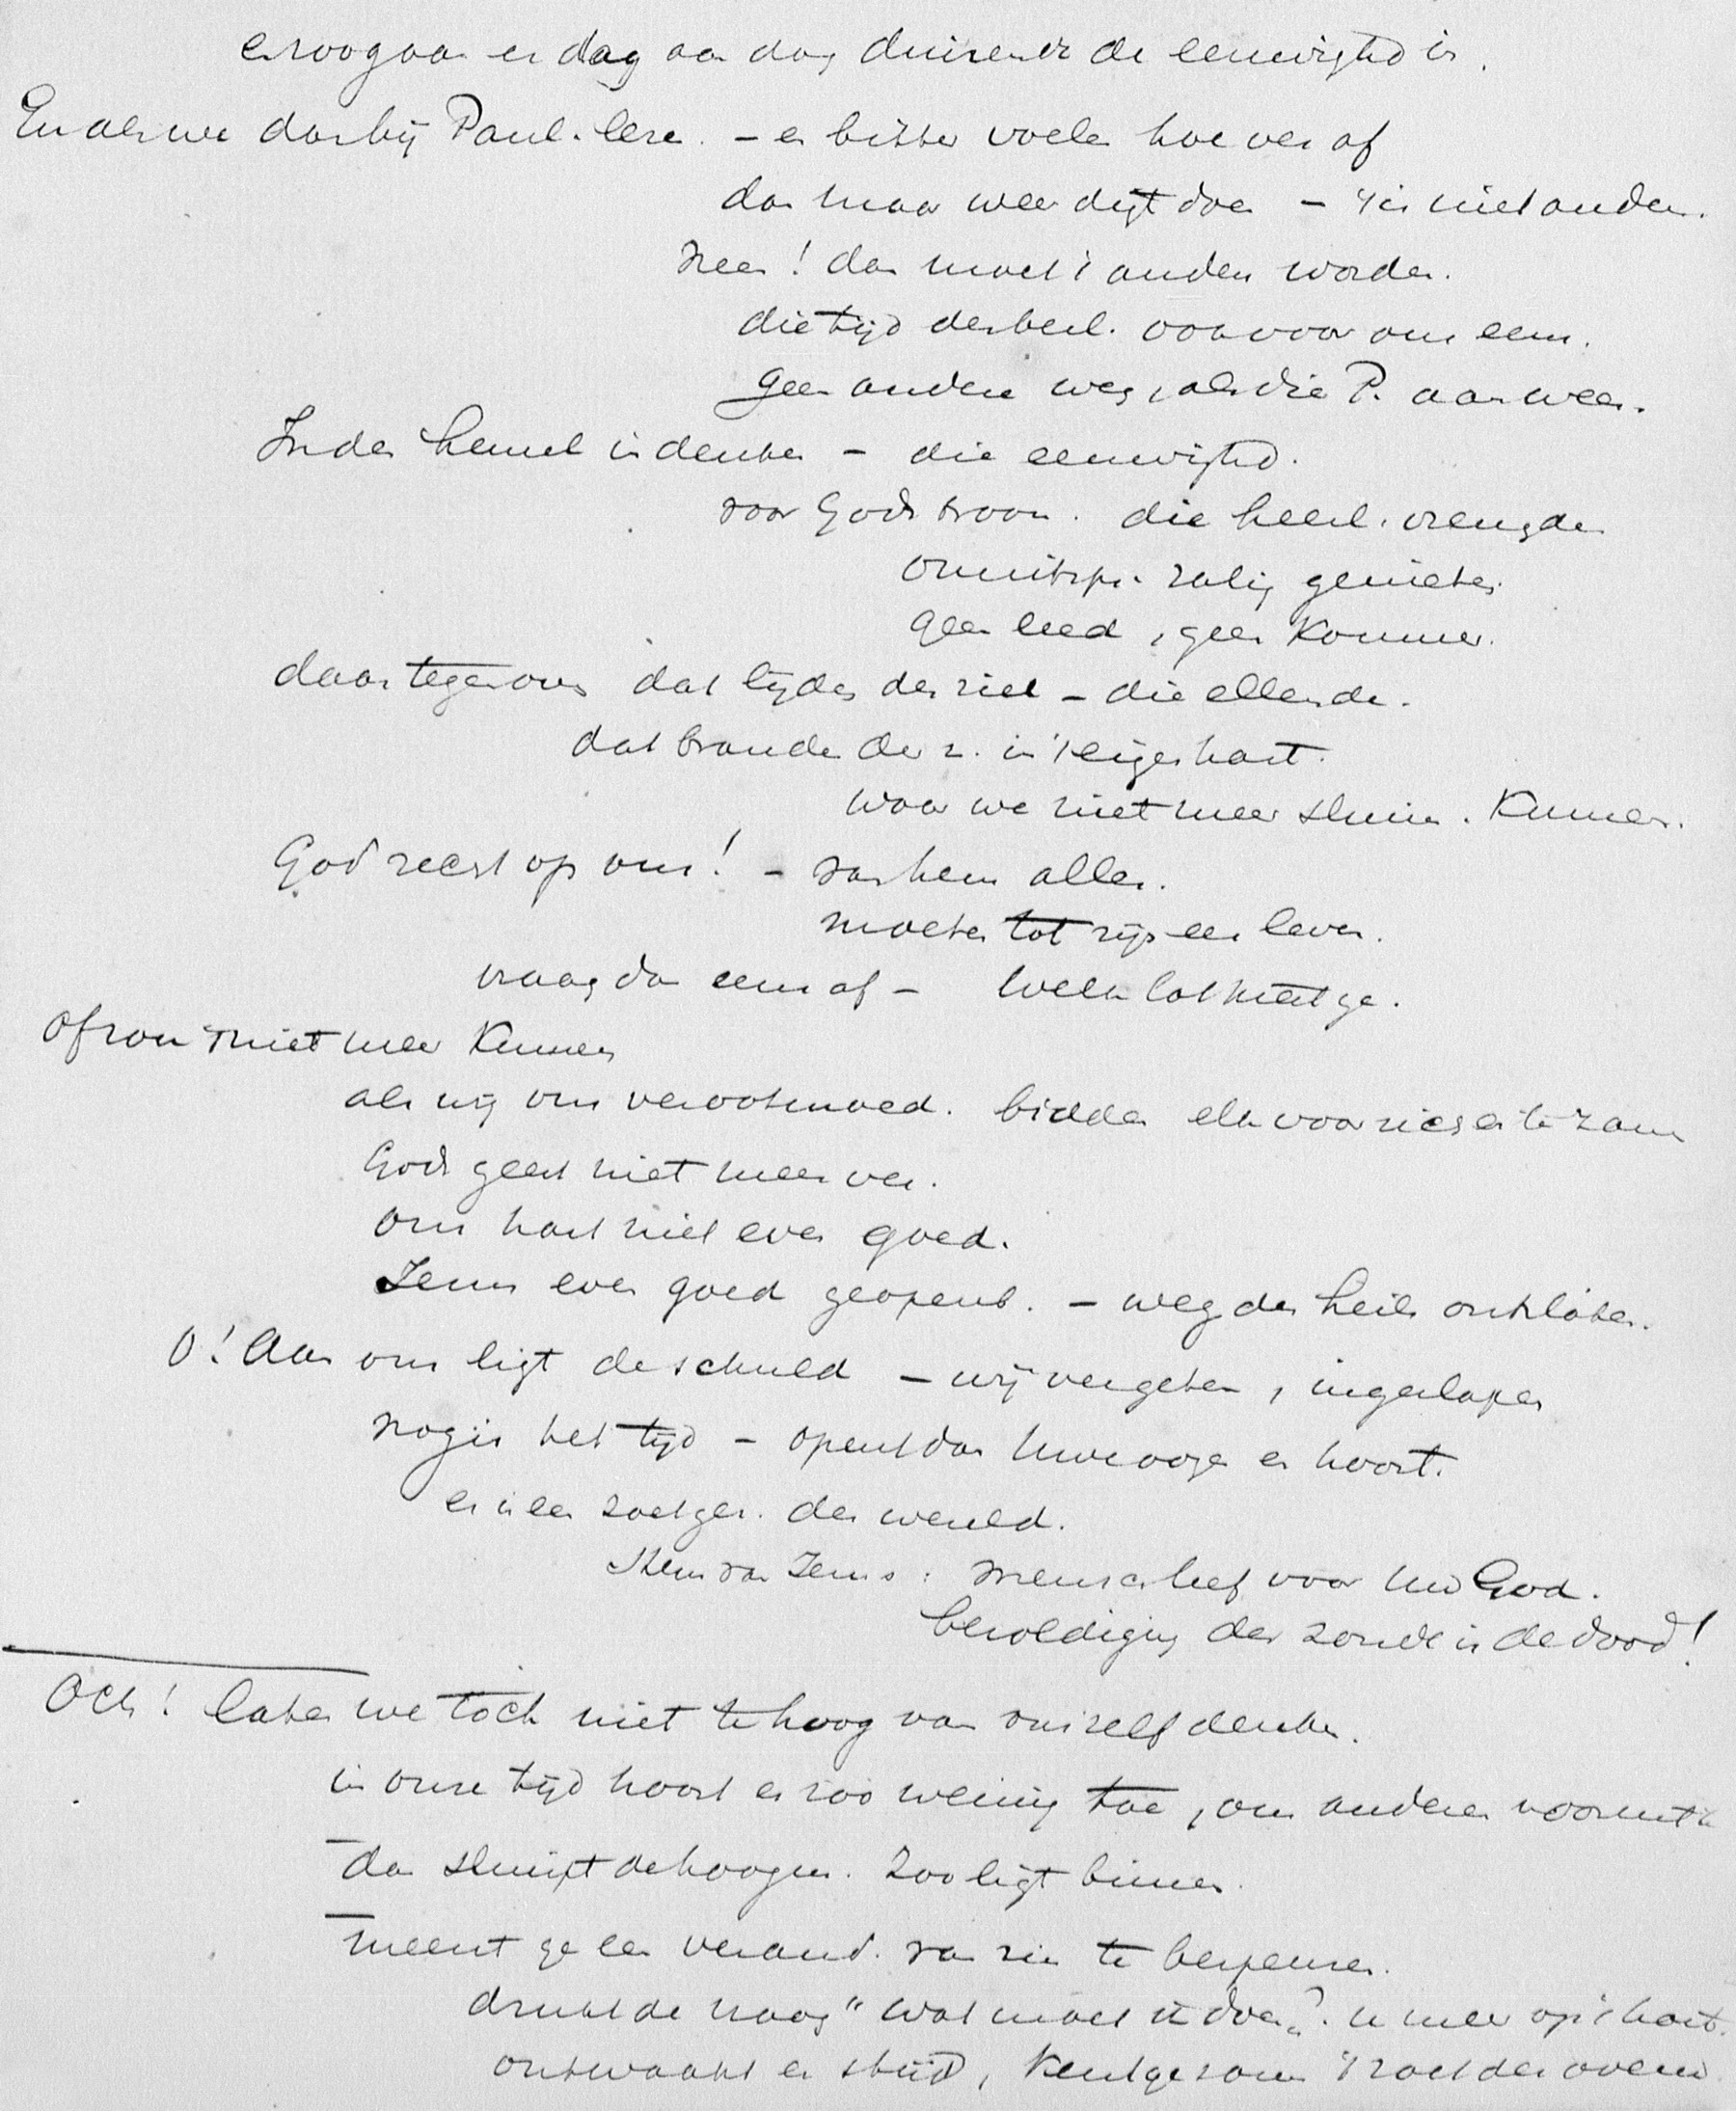 en zoo gaan er dag aan dag duizende de eeuwighd in.
En als we daarbij Paul. leze. - en bitter voele hoe ver af
dan maar weer digt doen - 't is niet anders.
Neen! dan moet 't anders worden.
die tijd der beel. ook voor ons eens.
geen andere weg, als die P. aanwees.
In den hemel in denken - die eeuwighd.
voor Gods troon. die heerl. vreugde
onuitspr. zalig genieten.
geen leed, geen Kommer.
daar tegenover dat lijden der ziel - die ellende.
dat branden der z. in 't eigen hart.
waar we niet meer sluim. Kunnen.
God ziet op ons! - van hem alles.
moeten tot zijn eer leven.
vraag dan eens af - welk lot kiest ge.
Of zou 't niet meer Kunnen
als wij ons verootmoed. bidden elk voor zich en te zam
Gods geest niet meer ver.
Ons hart niet even goed.
Jezus even goed geopenb. - weg des heils ontsloten.
O! Aan ons ligt de schuld - wij vergeten, ingeslapen
nog is het tijd - opent dan Uwe ooge en hoort.
er is een zoetger. der wereld.
Stem van Jezus: Mensch leef voor Uw God.
bezoldiging der zonde is de dood!
Och! laten we toch niet te hoog van onszelf denken.
in onze tijd hoort er zoo weinig toe, om anderen vooruit te
dan sluipt de hoogm. zoo ligt binnen.
meent ge een verand. van zin te bespeuren.
drukt de vraag "wat moet ik doen?" u meer op 't hart.
ontwaakt er strijd, Kent ge soms 't zoet der overw